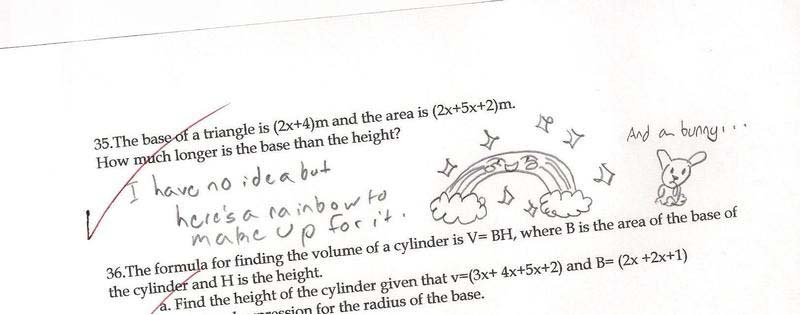 35.The base of a triangle is (2x+4)m and the area is (2x+5x+2)m.
How much longer is the base than the height?
I have no idea but
here's a rainbow to
make up for it.
And a bunny...
36.The formula for finding the volume of a cylinder is V= BH, where B is the area of the base of
the cylinder and H is the height.
a. Find the height of the cylinder given that v=(3x+ 4x+5x+2) and B= (2x +2x+1)
for the radius of the base.